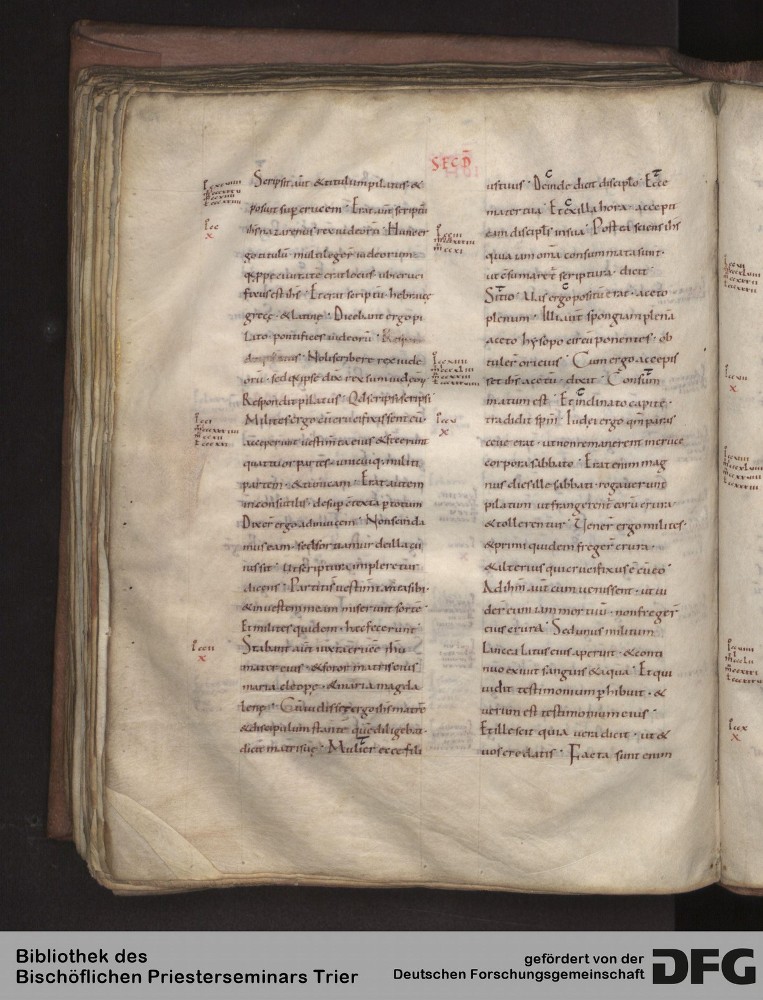 SECD
Scripsit aut̄ & titulum pilatus · &
posuit sup crucem · Erat aut̄ scriptū
ihs nazarenus rex iudeorū · Hunc er
go titulū · multi legēr iudeorum
qppe ciuitate erat locus · ubi cruci
fixus est ihs · Et erat scriptū · hebraice
grece · & latine · Dicebant ergo pi
lato · pontifices iudeorū ·
Noli scribere rex iude
orū · sed q ipse dix rex sum iudeorū
Respondit pilatus · Qd scripsi scripsi
Milites ergo cū crucifixissent eū ·
acceperunt uestimta eius & fecerunt
quattuor partes · unicuiq militi
partem · & tunicam · Erat autem
inconsutilis · desup ctexta p totum
Dixer̄ ergo adinuicem · Non scinda
mus eam · sed sortiamur de illa cui
ius sit · ut scriptura impleretur
dicens · Partiti s uestimta mea sibi ·
& in uestem meam miserunt sorte ·
Et milites quidem · hec fecerunt
Stabant aut̄ iuxta crucē ihu
mater eius · & soror matris eius
maria cleope · & maria magda
lene · Cū uidisset ergo ihs matrē
& discipulum stante quē diligebat ·
dicit matri sue · Mulier ecce fili
us tuus · Deinde dicit discipło · Ecce
mater tua · Et ex illa hora · accepit
eam discipls in sua · Postea sciens ihs
quia iam oma consummata sunt ·
ut csumaret scriptura · dicit
Sitio · Uas ergo positū erat · aceto
plenum · Illi aut spongiam plenā
aceto hysopo circumponentes · ob
tuler̄ ori eius · Cum ergo accepis
set ihs acetū · dixit · Consum
matum est · Et inclinato capite ·
tradidit spm · Iudei ergo qm paras
ceue erat · ut non remanerent in cruce
corpora sabbato · Erat enim mag
nus dies ille sabbati · rogauerunt
pilatum ut frangerent eorū crura ·
& tollerentur · Uener̄ ergo milites ·
& primi quidem freger̄ crura ·
& alterius qui crucifixus ē cū eo ·
Ad ihm aut cum uenissent · ut ui
der eum iam mortuū · non freger̄
eius crura · Sed unus militum
lancea latus eius aperuit · & conti
nuo exiuit sanguis & aqua · Et qui
uidit testimonium phibuit · &
uerum est testimonium eius ·
Et ille scit quia uera dicit · ut &
uos credatis · Facta sunt enim
Bibliothek des
Bischöflichen Priesterseminars Trier
gefördert von der
Deutschen Forschungsgemeinschaft
DFG